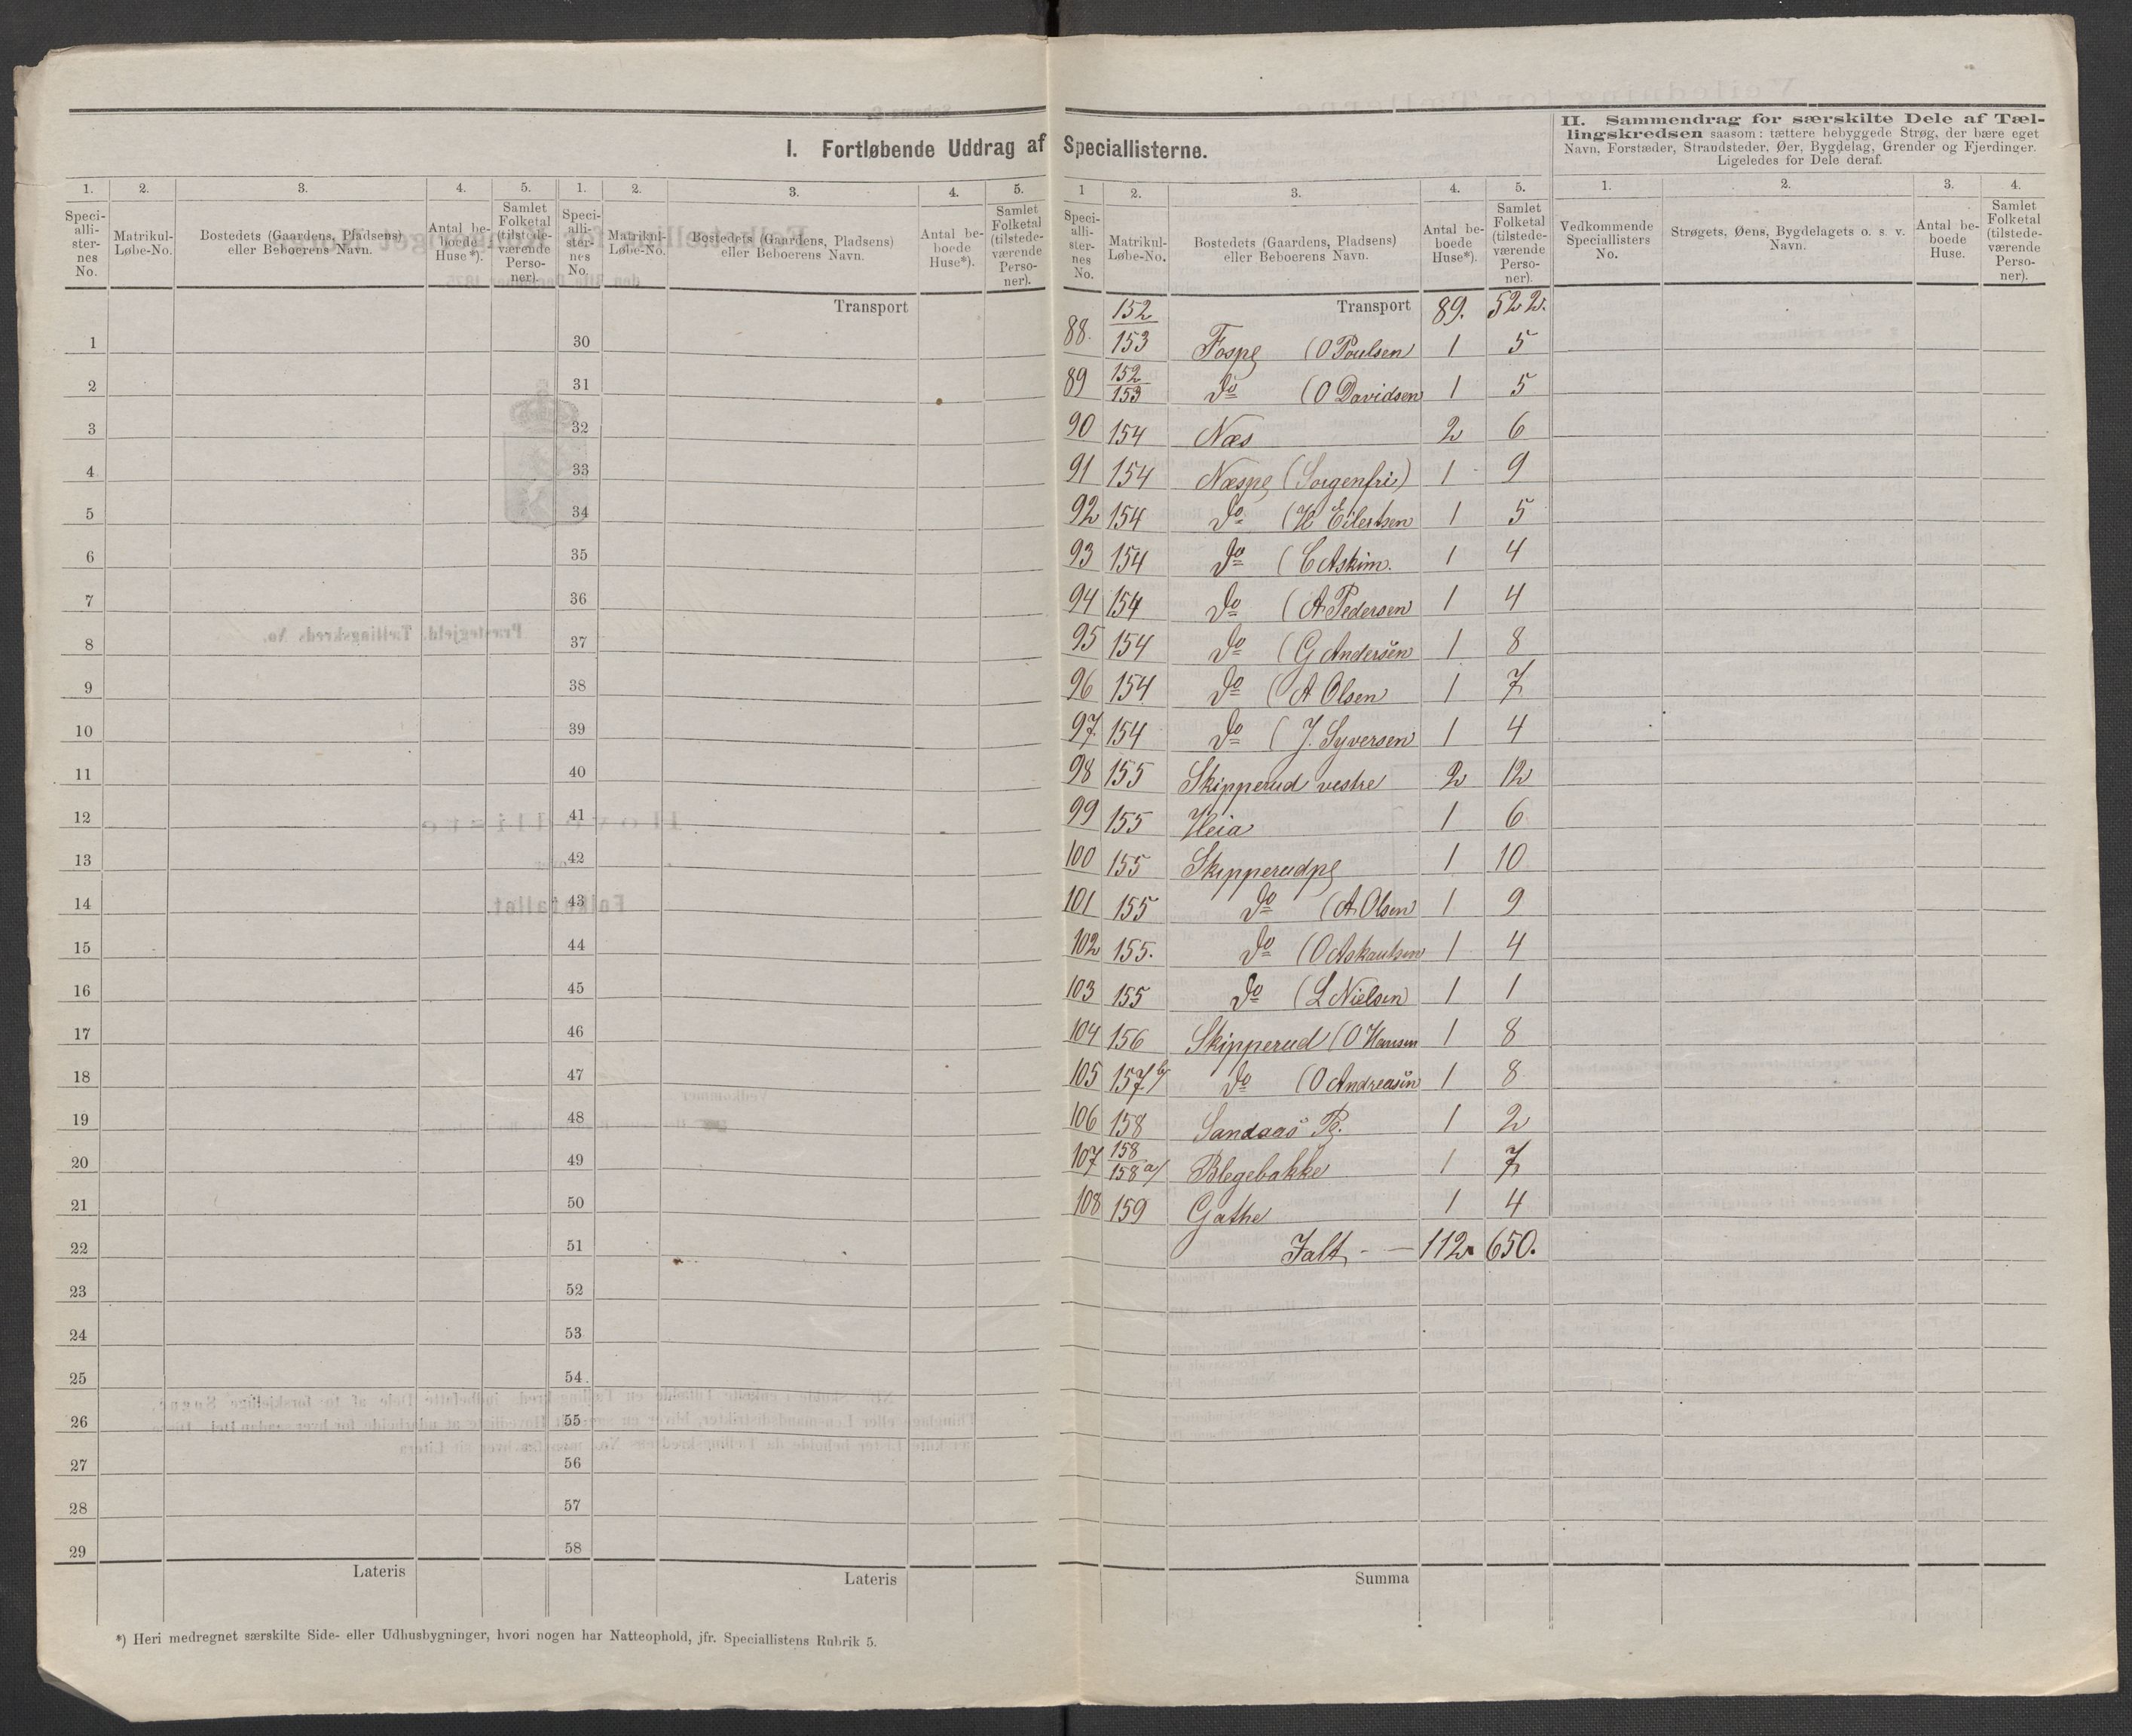 I. Fortløbende Uddrag af Speciallisterne.
II. Sammendrag for særskilte Dele af Tæl-
lingskredsen saasom: tættere bebyggede Strøg, der bære eget
Navn, Forstæder, Strandsteder, Øer, Bygdelag, Grender og Fjerdinger.
Ligeledes for Dele deraf.
1. 2. 3. 4. 5. 1. 2. 3. 4. 5. 1 2. 3. 4. 5. 1. 2. 3. 4.
Speci-alli-ster-nes No. Matrikul-Løbe-No. Bostedets (Gaardens, Pladsens) eller Beboerens Navn. Antal be-boede Huse*). Samlet Folketal (tilstede-værende Perso-ner).
Speci-alli-ster-nes No. Matrikul-Løbe-No. Bostedets (Gaardens, Pladsens) eller Beboerens Navn. Antal be-boede Huse*). Samlet Folketal (tilstede-værende Perso-ner).
Speci-alli-ster-nes No. Matrikul-Løbe-No. Bostedets (Gaardens, Pladsens) eller Beboerens Navn. Antal be-boede Huse*). Samlet Folketal (tilstede-værende Perso-ner).
Vedkommende Speciallisters No. Strøgets, Øens, Bygdelagets o. s. v. Navn. Antal be-boede Huse. Samlet Folketal (tilstede-værende Perso-ner).
Transport
Transport 89. 522.
1 30 88 152/153 Fospg (O Poulsen 1 5
2 31 89 152/153 do (O Davidsen 1 5
3 32 90 154 Næs 2 6
4 33 91 154 Næspg (Sorgenfri) 1 9
5 34 92 154 do (H Eilertsen 1 5
6 35 93 154 do (C Askim. 1 4
7 36 94 154 do (A Pedersen 1 4
8 37 95 154 do (G Andersen 1 8
9 38 96 154 do (A Olsen 1 7
10 39 97 154 do (J. Syversen 1 4
11 40 98 155 Skipperud vestre 2 12
12 41 99 155 Heia 1 6
13 42 100 155 Skipperudpg 1 10
14 43 101 155 do (A Olsen 1 9
15 44 102 155. do (O Askautsen 1 4
16 45 103 155 do (L Nielsen 1 1
17 46 104 156 Skipperud (O Hansen 1 8
18 47 105 157 b/ do (O Andreasen 1 8
19 48 106 158 Sandaas Pg. 1 2
20 49 107 158/158 a/ Blegebakke 1 7
21 50 108 159 Gathe 1 4
22 51 Ialt - — 112 650.
23 52
24 53
25 54
26 55
27 56
28 57
29 58
Lateris Lateris Summa
*) Heri medregnet særskilte Side- eller Udhusbygninger, hvori nogen har Natteophold, jfr. Speciallistens Rubrik 5.